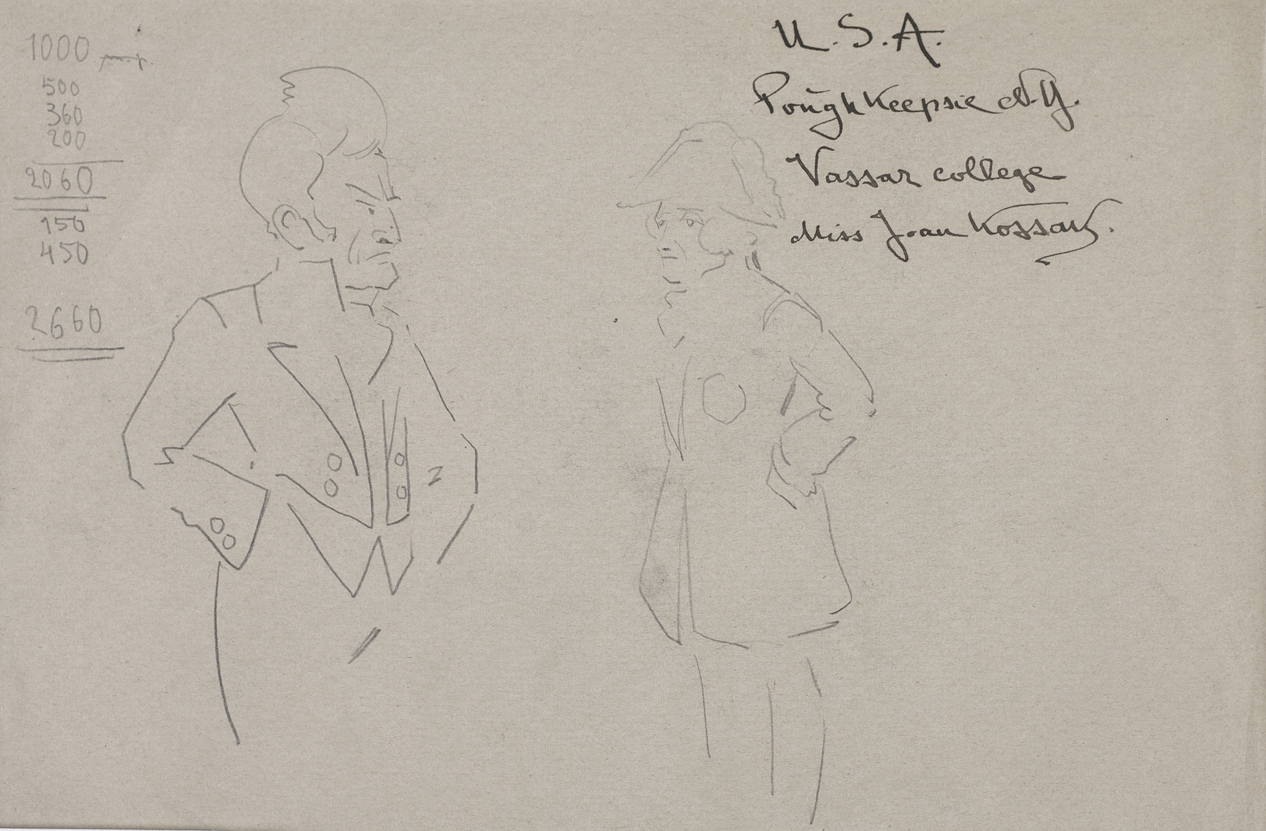 1000
500
360
200
2060
150
450
2660
U.S.A.
PoughKeepsie N.Y.
Vassar college
Miss Joan Kossak.